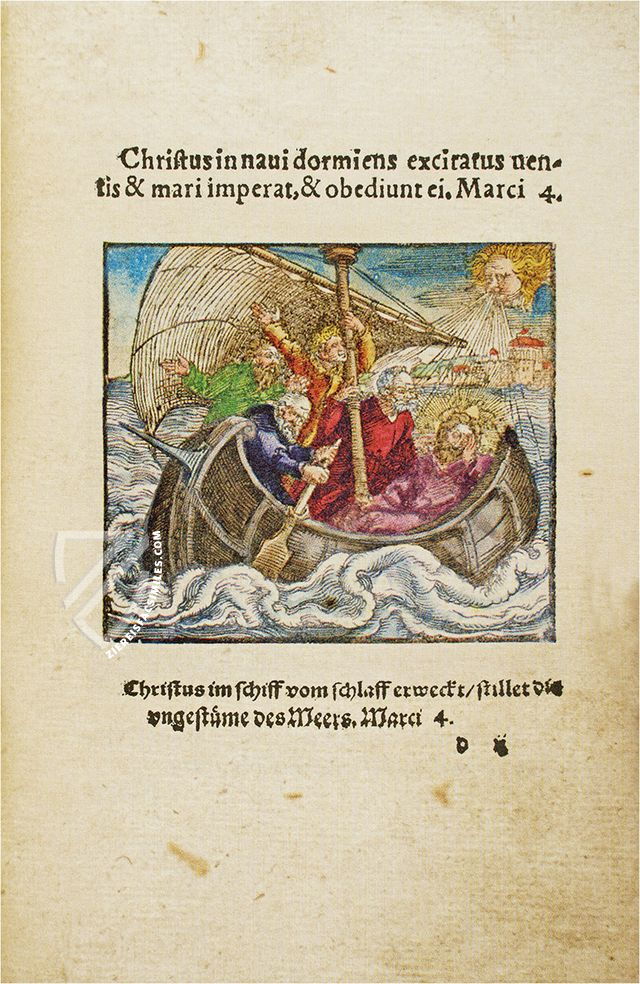 Chriſtus in naui dormiens excitatus uen-
tis & mari imperat, & obediunt ei. Marci 4.
ZIEREIS FACSIMILES.COM
Chriſtus im ſchiff vom ſchlaff erweckt / ſtillet die
vngeſtüme des Meers. Marci 4.